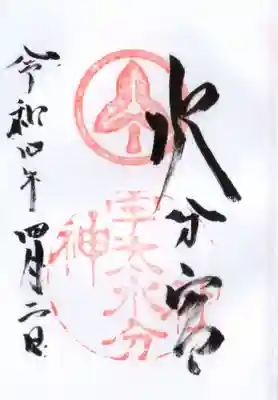 水分宮
宇太水分
神
令和四年
四月二日